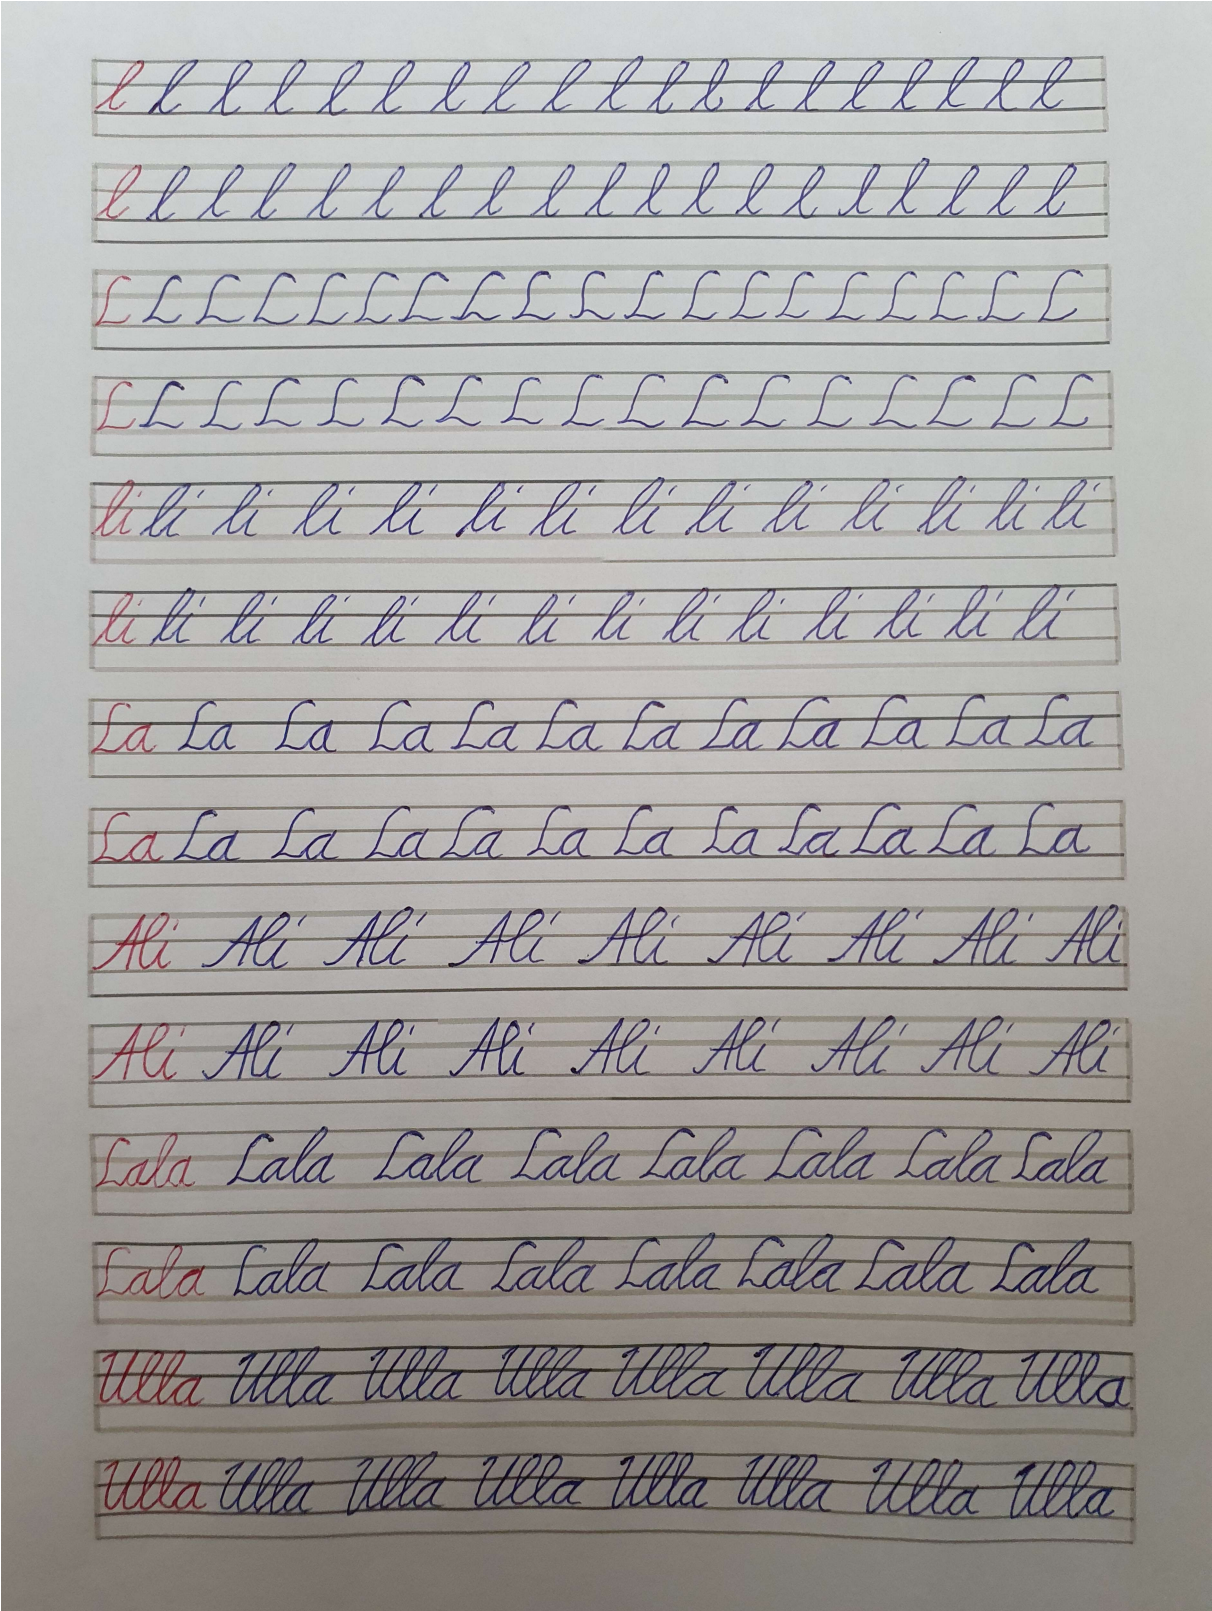 l l l l l l l l l l l l l l l l l l l l
l l l l l l l l l l l l l l l l l l l
L L L L L L L L L L L L L L L L L L L
L L L L L L L L L L L L L L L L L
li li li li li li li li li li li li li li
li li li li li li li li li li li li li li
La La La La La La La La La La La La
La La La La La La La La La La La La
Ali Ali Ali Ali Ali Ali Ali Ali Ali
Ali Ali Ali Ali Ali Ali Ali Ali Ali
Lala Lala Lala Lala Lala Lala Lala Lala
Lala Lala Lala Lala Lala Lala Lala Lala
Ulla Ulla Ulla Ulla Ulla Ulla Ulla Ulla
Ulla Ulla Ulla Ulla Ulla Ulla Ulla Ulla